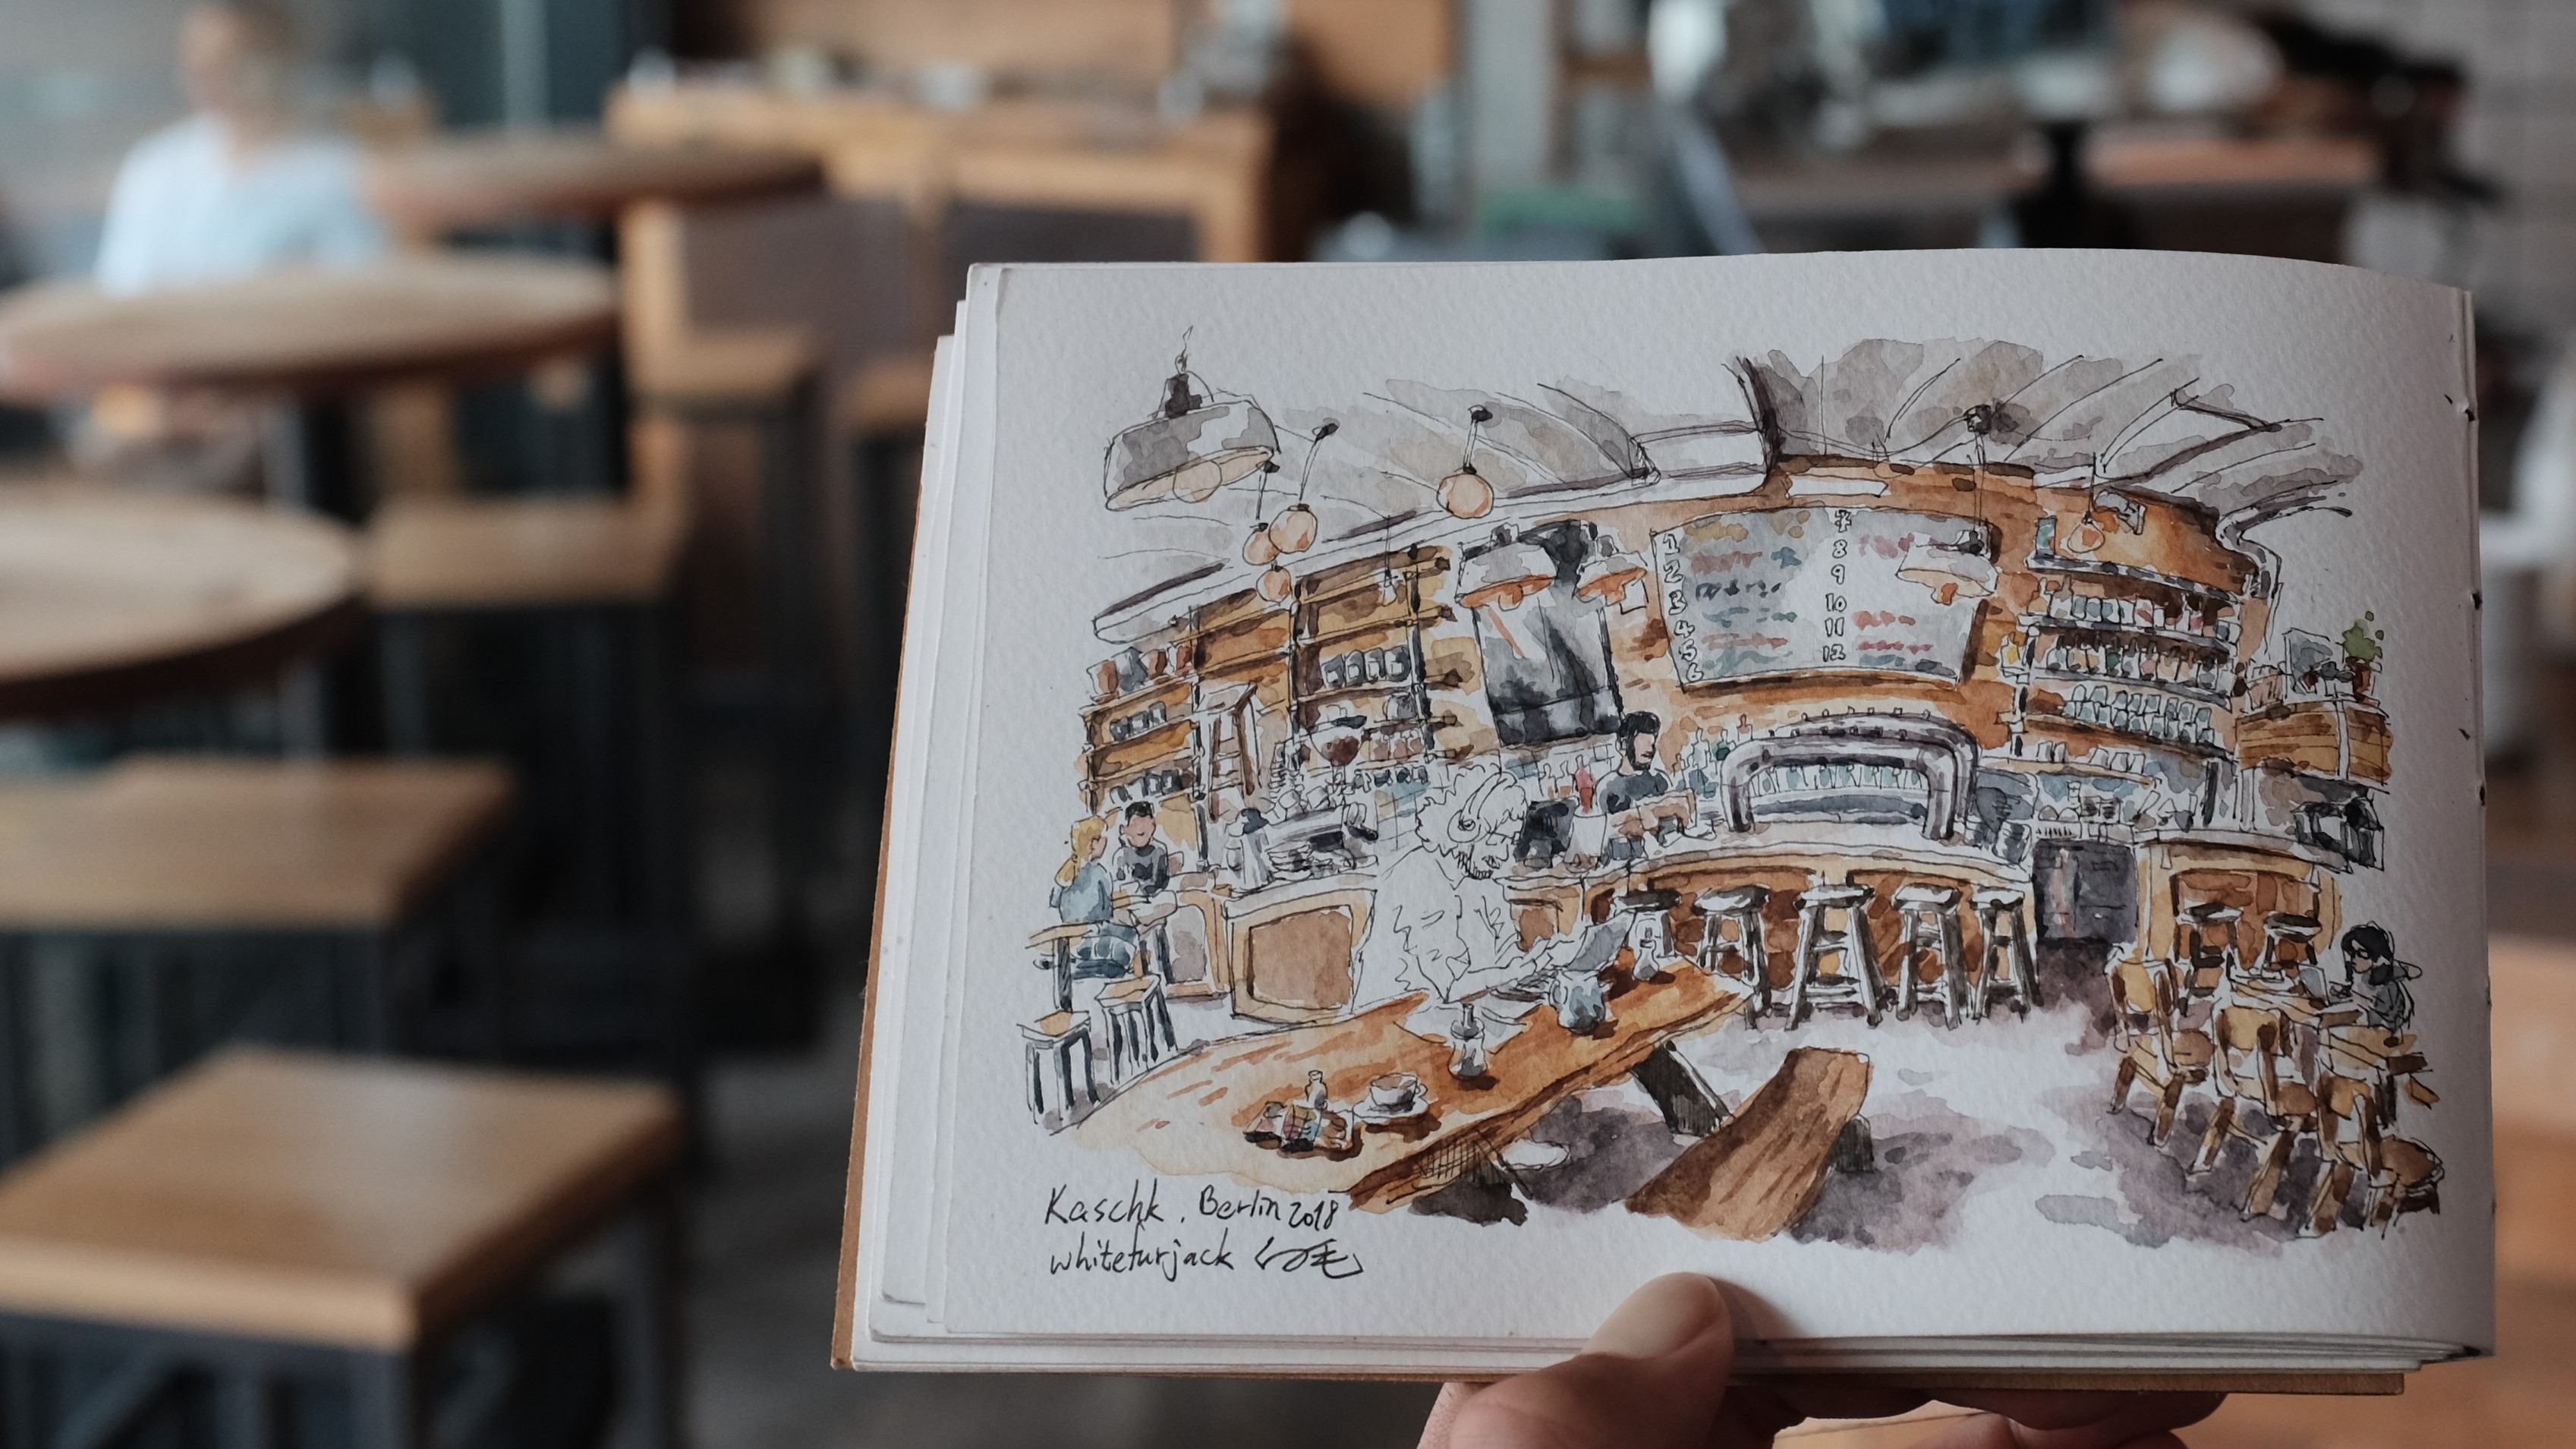 1
2
3
4
5
6
7
8
9
10
11
12
Kaschk, Berlin 2018
whitefurjack 白毛